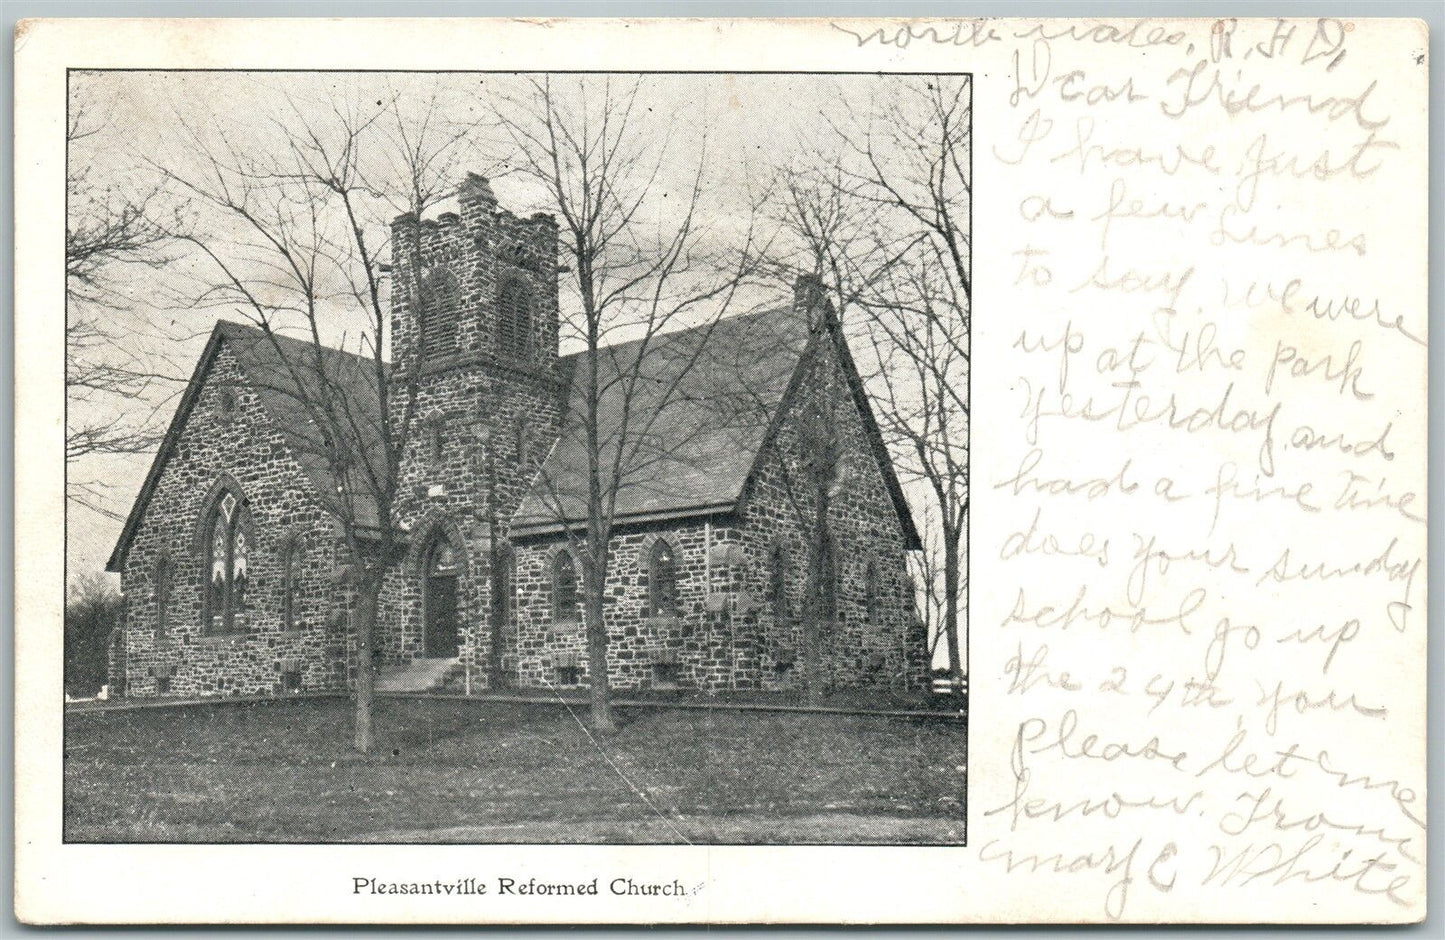 North Wales, R. F. D,
Dear Friend
I have Just
a few Lines
to say, we were
up at The park
Yesterday, and
had a fine Time
does your sunday
school go up
The 24th, You
please let me
know. From
Mary E White
Pleasantville Reformed Church